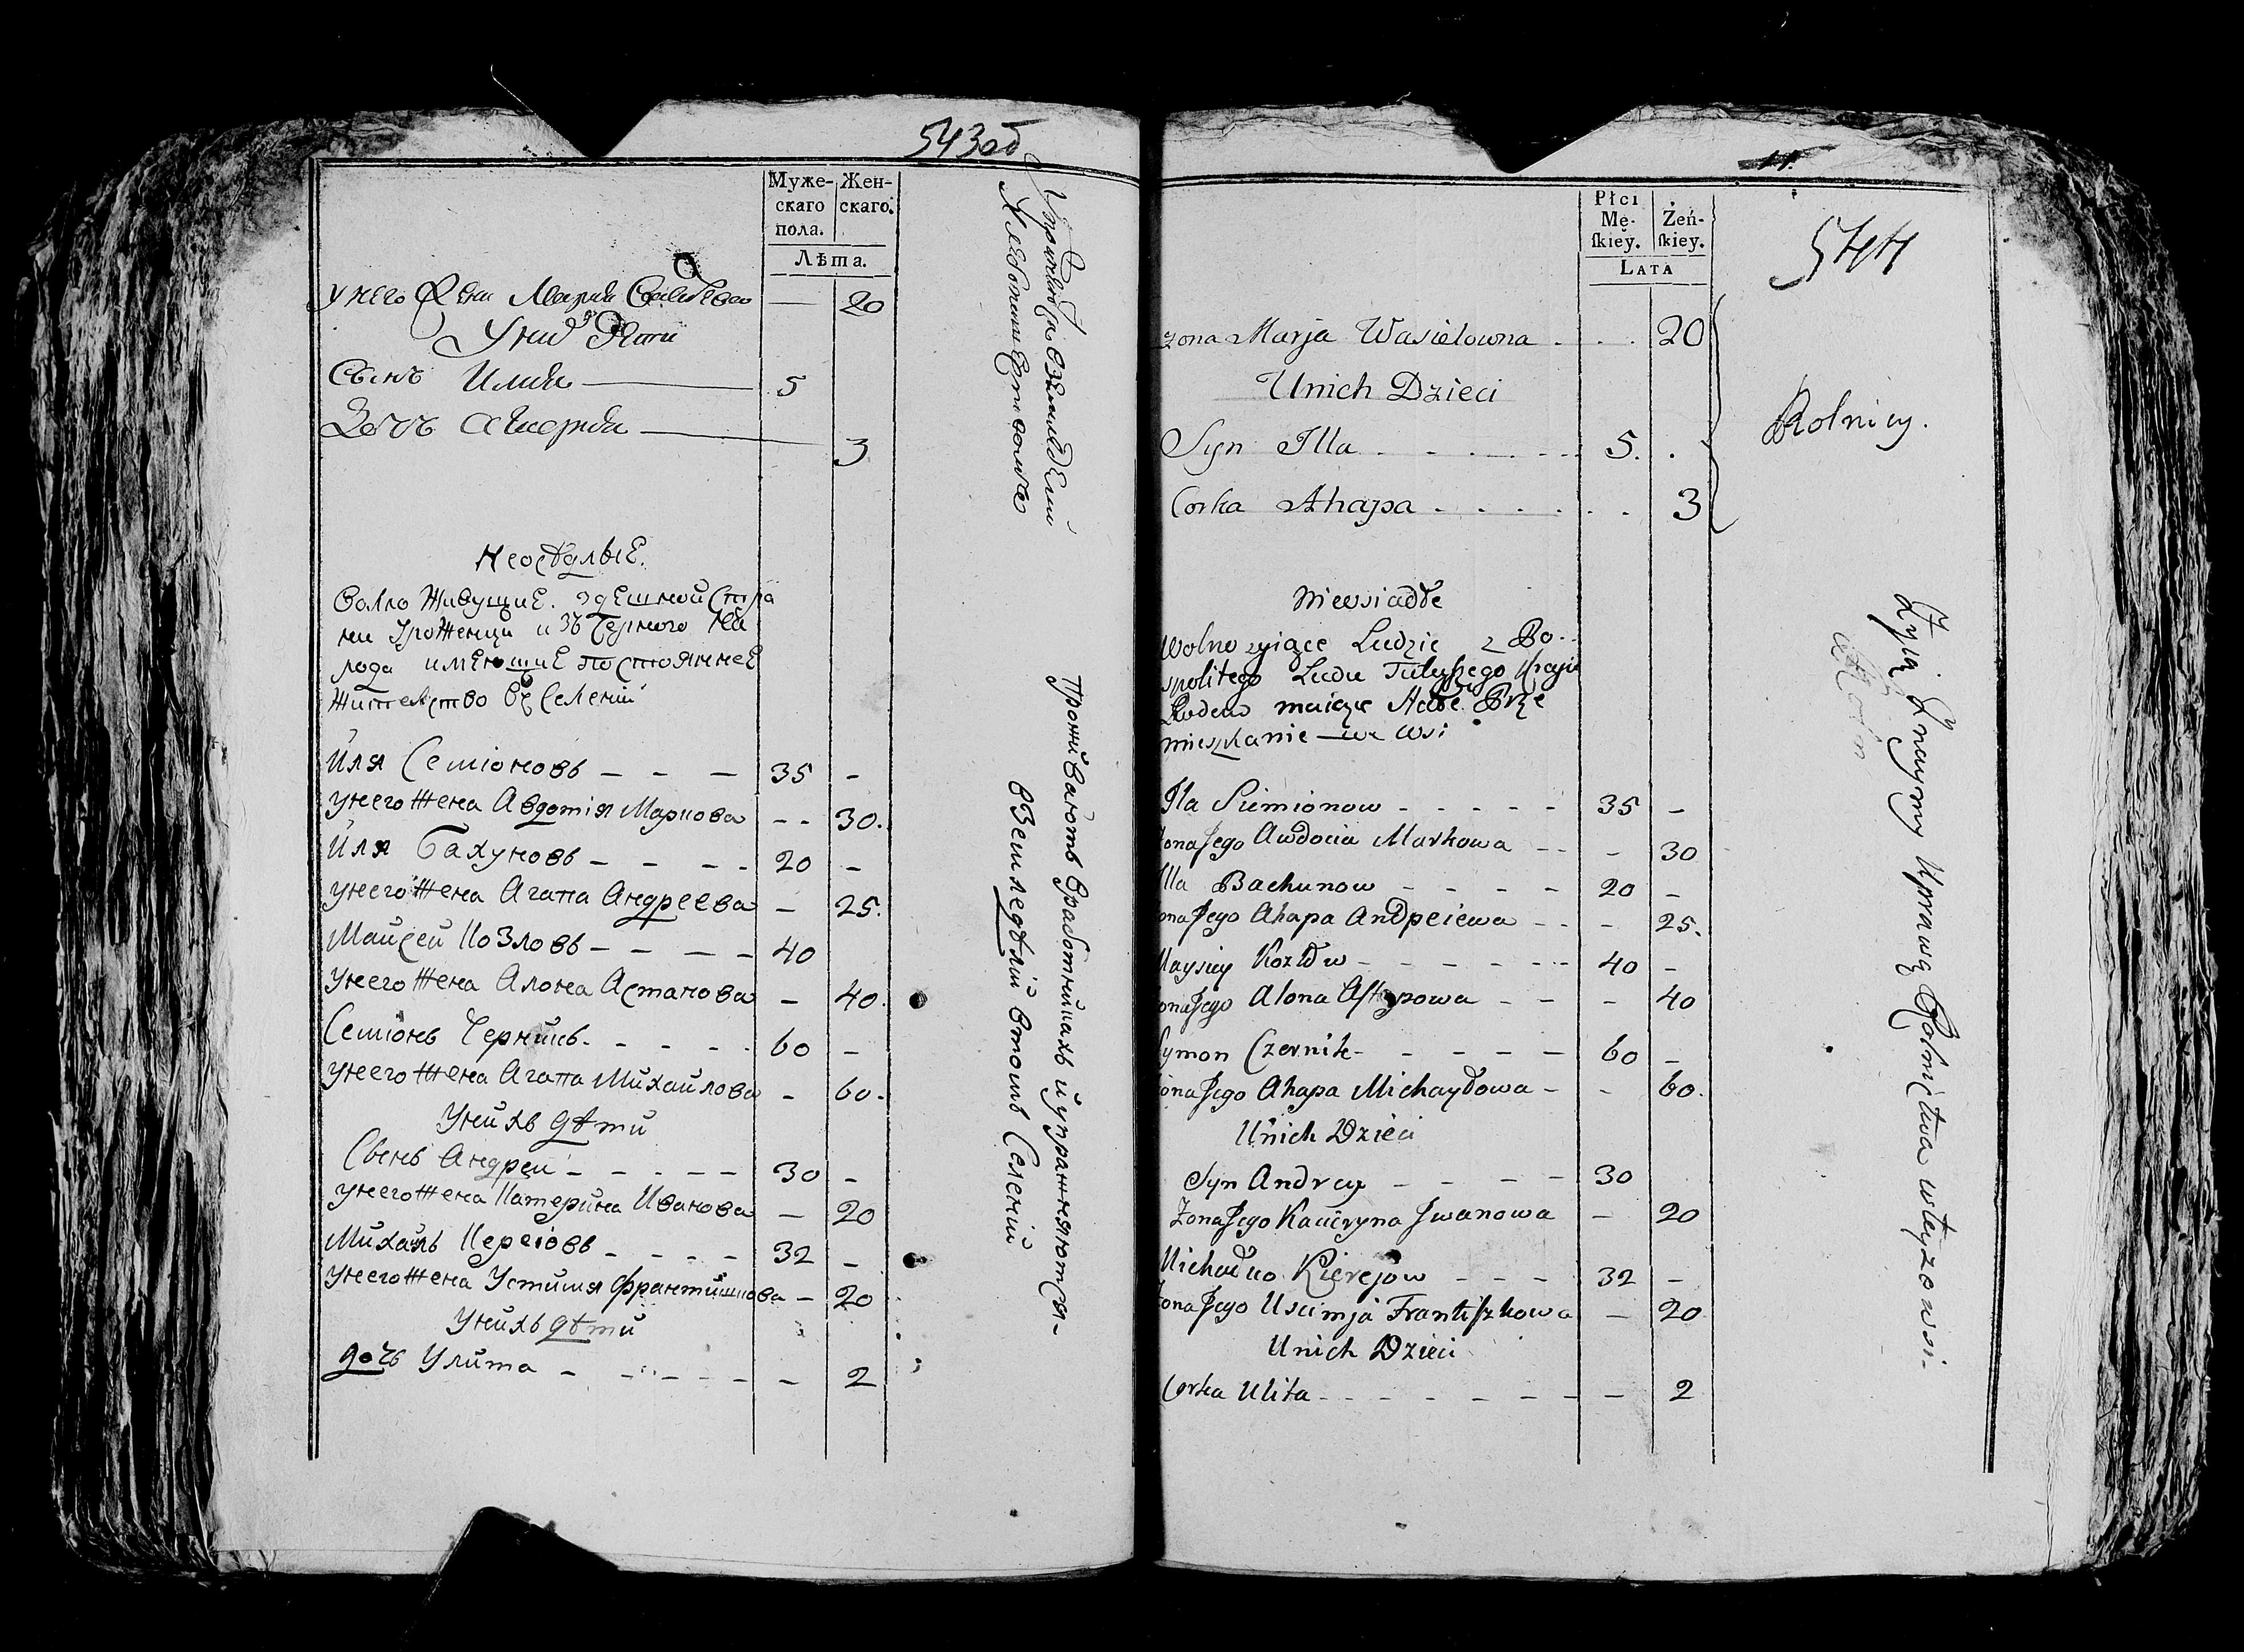 543об
Муже-
скаго
пола.
Жен-
скаго.
Лѣта.
у него Жена Марья — 20
У нихъ Дѣти
Сынъ Илья — 5
Дочь — 3
Неосѣдлые.
Волно Живущие. здешней Стра
ни Уроженци и зъ Черного На
рода имеющие постоянное
жителство въ Селении
Иля Семіоновъ — — — 35 –
у него жена Авдотія Маркова – – 30.
Иля Бахуновъ – – – – 20 –
у него жена Агапа Андреева – 25.
Майсей Козловъ – – – – 40
у него жена Алона Астапова – 40.
Семіонъ Черникъ – – – – 60 –
у него жена Агапа Михайлова – 60.
У нихъ дѣти
Сынъ Андрей – – – – – 30 –
у него жена Катерина Иванова – 20
Михалъ Кереіовъ – – – – 32 –
у него жена Устимя Франтишкова – 20
У нихъ дѣти
дочь Улита – – – – – – 2
Упражняются въ Земледелии
Хлебопашествомъ
Проживаютъ въ работникахъ и упражняются
въ Земледѣліи в томъ Селеніи
11.
544
Płci
Mę-
ſkiey.
Żeń-
ſkiey.
Lata
żona Marja Wasielowna . . . 20
U nich Dzieci
Syn Illa . . . . . . 5. .
Corka Ahapa . . . . . . . 3
Rolnicy.
Nieosiadłe
Wolno zyiące Ludzie z Po-
spolitego Ludu Tuteyszego Kraju
Rodem maiące Stałe Prze
mieszkanie we Wsi
Illa Siemionow – – – – – 35 –
Zona Jego Awdocia Markowa – – – 30
Illa Bachunow – – – – 20 –
Zona Jego Ahapa Andreiewa – – – 25.
Maysiey Kozłow – – – – – – 40 –
Zona Jego Alona Astapowa – – – 40
Symon Czernik – – – – – 60 –
Zona Jego Ahapa Michayłowa – – 60.
U nich Dzieci
Syn Andrey – – – – 30
Zona Jego Kacieryna Iwanowa – 20
Michałko Kierejow – – – 32 –
Zona Jego Uscimja Frantiszkowa – 20
U nich Dzieci
Corka Ulita – – – – – – – – 2
Zyią Uprawą Rolnictwa w teyze wsi –